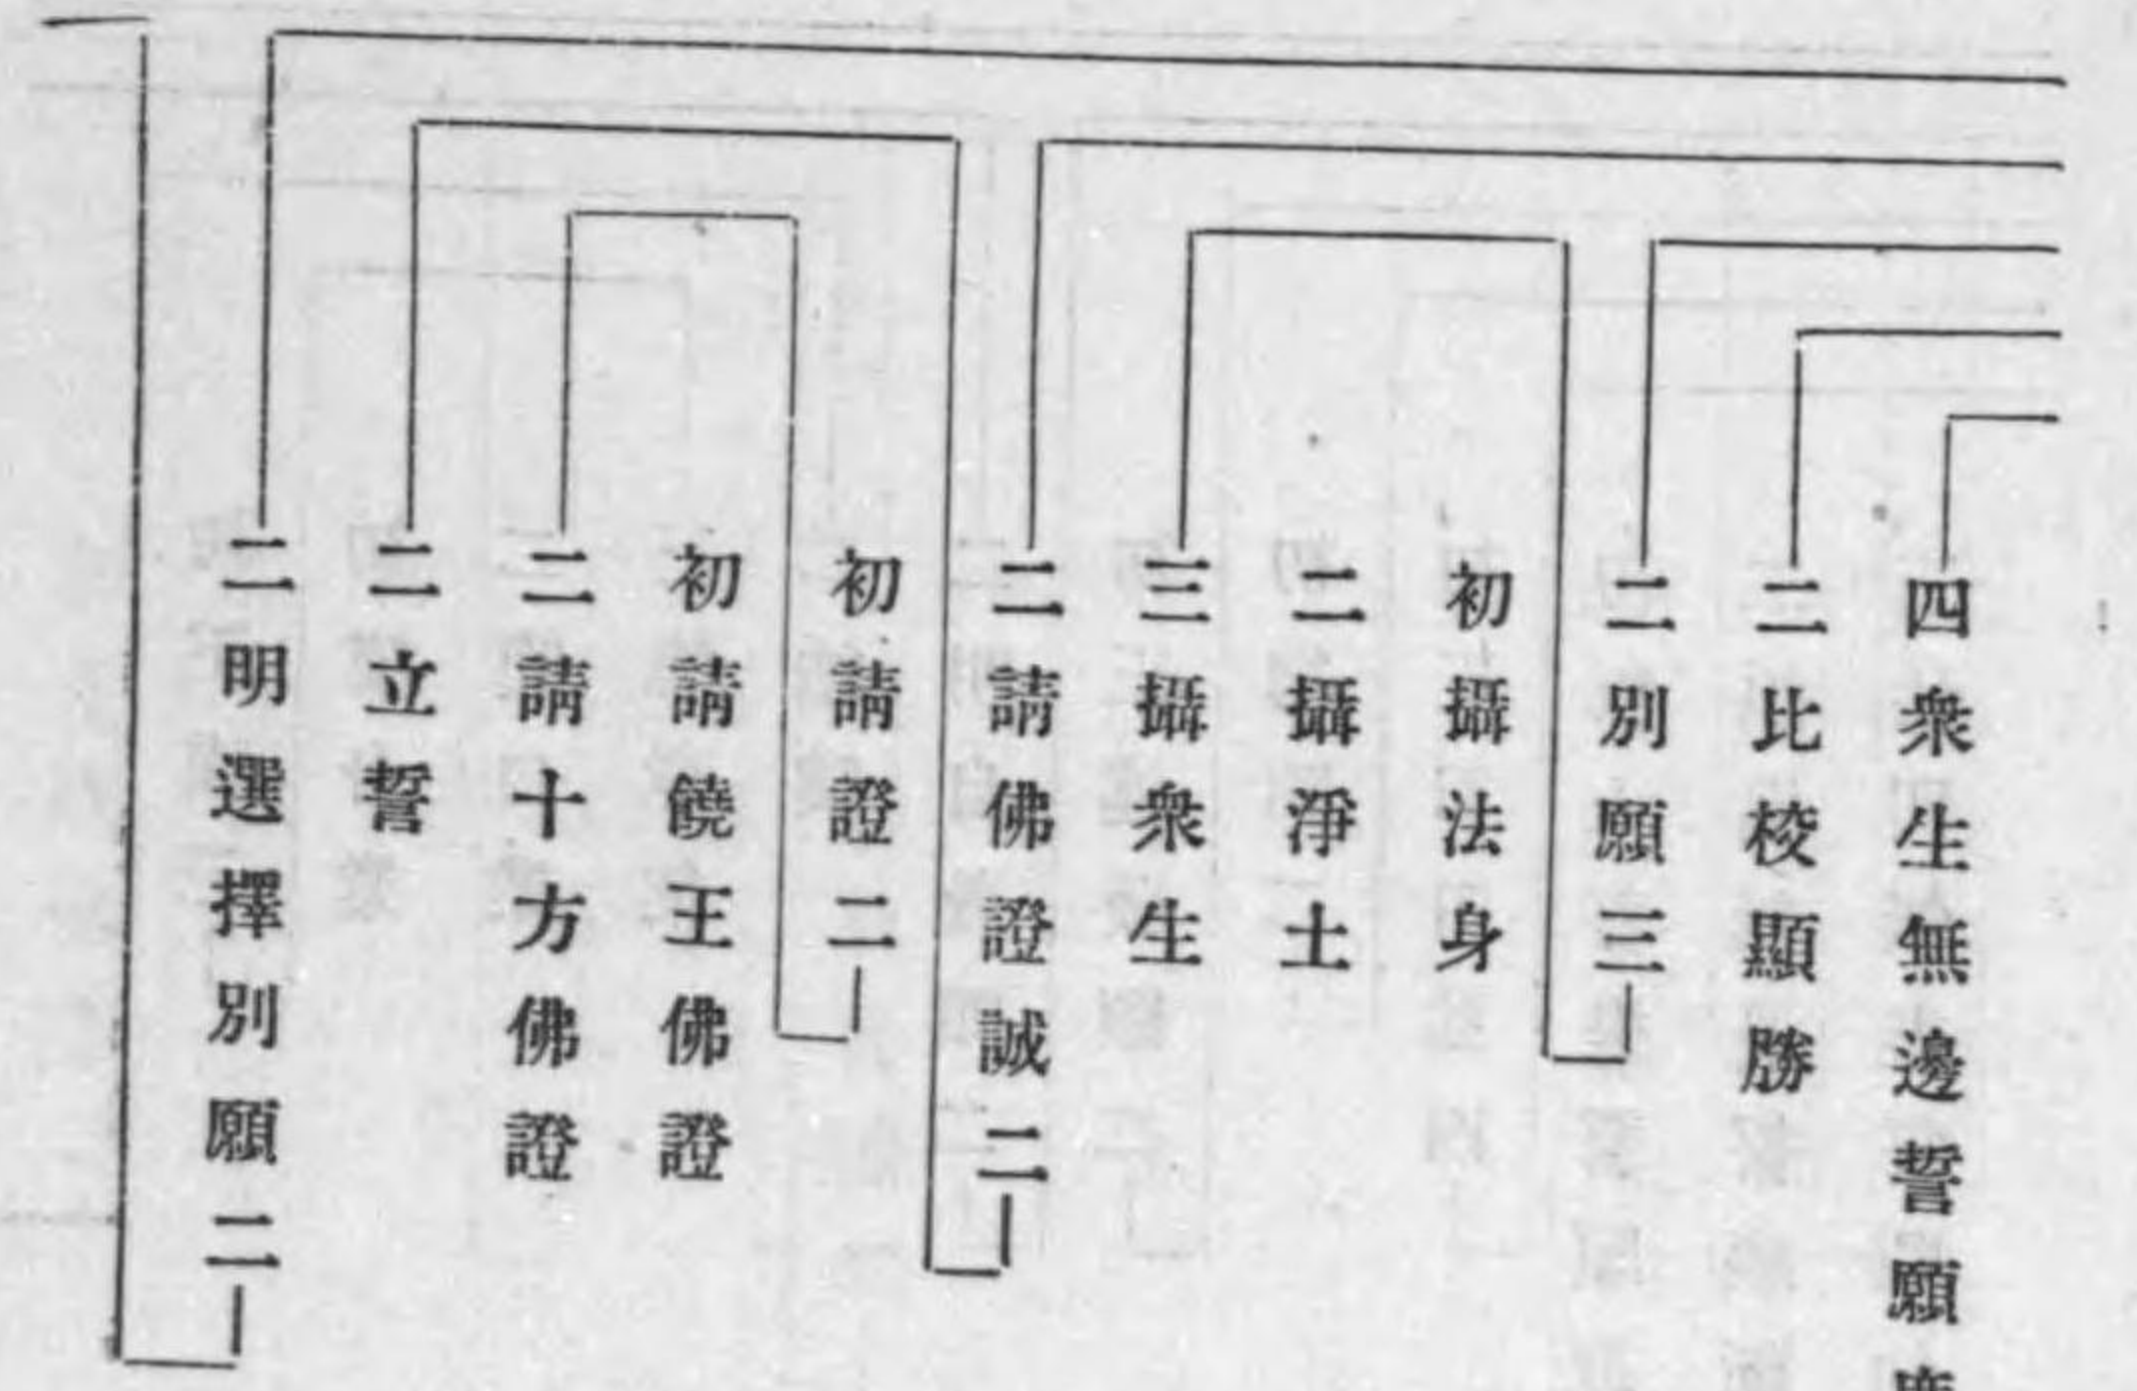 四衆生無邊誓願
二比校顯勝
二別願三
初攝法身
二攝淨土
三攝衆生
二請佛證誠二
初請證二
初請饒王佛證
二請十方佛證
二立誓
二明選擇別願二